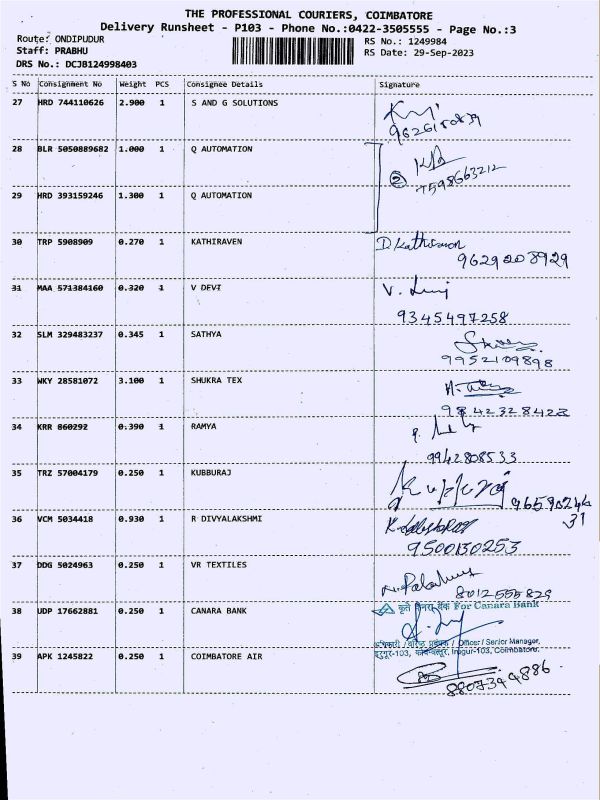 THE PROFESSIONAL COURIERS, COIMBATORE
Delivery Runsheet - P103 - Phone No.:0422-3505555 - Page No.:3
Route: ONDIPUDUR RS No.: 1249984
Staff: PRABHU RS Date: 29-Sep-2023
DRS No.: DCJB124998403
S No Consignment No Weight PCS Consignee Details Signature
27 HRD 744110626 2.900 1 S AND G SOLUTIONS
9626180839
28 BLR 5050889682 1.000 1 Q AUTOMATION
2 7598663212
29 HRD 393159246 1.300 1 Q AUTOMATION
30 TRP 5908909 0.270 1 KATHIRAVEN D. Kathiravan
9629208929
31 MAA 571384160 0.320 1 V DEVI V. Devi
9345497258
32 SLM 329483237 0.345 1 SATHYA
9952109898
33 WKY 28581072 3.100 1 SHUKRA TEX
9842328428
34 KRR 860292 0.390 1 RAMYA
9942808533
35 TRZ 57004179 0.250 1 KUBBURAJ
36 VCM 5034418 0.930 1 R DIVYALAKSHMI
31
9500130253
37 DDG 5024963 0.250 1 VR TEXTILES
8012555829
कृते केनरा बैंक For Canara Bank
38 UDP 17662881 0.250 1 CANARA BANK
अधिकारी / वरिष्ठ प्रबंधक / Officer / Senior Manager,
इरुगूर-103, कोयम्बत्तूर, Irugur-103, Coimbatore.
39 APK 1245822 0.250 1 COIMBATORE AIR
8807394886